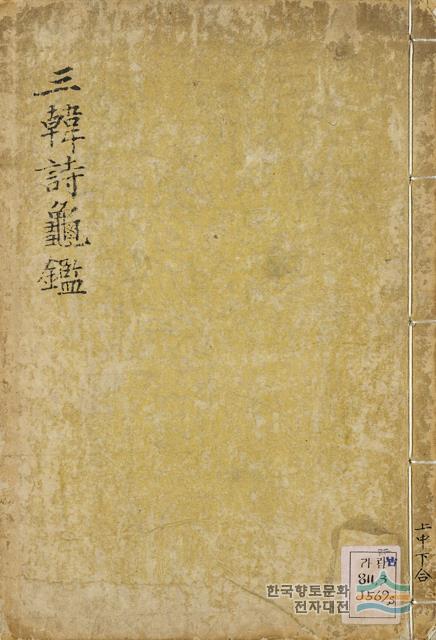 三韓詩龜鑑
上中下合
가람
811.3
J569s
한국향토문화
전자대전